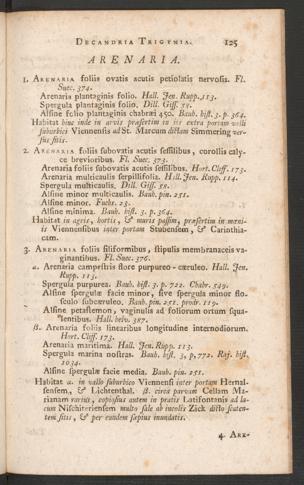 DECANDRIA TRIGYNIA. 125
ARENARIA.
1. ARENARIA foliis ovatis acutis petiolatis nervosis. Fl.
Suec. 374.
Arenaria plantaginis folio. Hall. Jen. Rupp. 113.
Spergula plantaginis folio. Dill. Giff.
Alsine folio plantaginis chabræi 450. Bauh. hist. 3. p. 364.
Habitat hinc inde in arvis præsertim in iis extra portam
suburbici Viennensis ad St. Marcum dictam Simmering ver-
sus sitis.
2. ARENARIA foliis subovatis acutis sessilibus, corollis caly-
ce brevioribus. Fl. Suec. 373.
Arenaria foliis subovatis acutis sessilibus. Hort. Cliff. 173.
Arenaria multicaulis serpillifolia. Hall. Jen. Rupp. 114.
Spergula multicaulis. Dill. Giff.
Alsine minor multicaulis. Bauh. pin. 251.
Alsine minor. Fuchs. 23.
Alsine minima. Bauh. hist. 3. p. 364.
Habitat in agris, hortis, & muris passim, præsertim in mœni-
is Viennensibus inter portam Stubensem, & Carinthia-
cam.
3. ARENARIA foliis filiformibus, stipulis membranaceis va-
ginantibus. Fl. Suec. 376.
α. Arenaria campestris flore purpureo-cæruleo. Hall. Jen.
Rupp. 113.
Spergula purpurea. Bauh. hist. 3. p. 722. Chabr. 549.
Alsine spergulæ facie minor, sive spergula minor flo-
sculo subcæruleo. Bauh. pin. 251. prodr. 119.
Alsine petastemon, vaginulis ad foliorum ortum squa-
lentibus. Hall. helv. 387.
β. Arenaria foliis linearibus longitudine internodiorum.
Hort. Cliff. 173.
Arenaria maritima. Hall. Jen. Rupp. 113.
Spergula marina nostras. Bauh. hist. 3. p. 772. Raj. hist.
1034.
Alsine spergulæ facie media. Bauh. pin. 251.
Habitat α. in vallo suburbico Viennensi inter portam Hernal-
sensem, & Lichtenthal. β. circa parvam Cellam Ma-
rianam rarius, copiosius autem in pratis Latifontanis ad la-
cum Nischiteriensem multo sale ab incolis Zick dicto scaten-
tem sitis, & per eundem sæpius inundatis.
4. ARE-